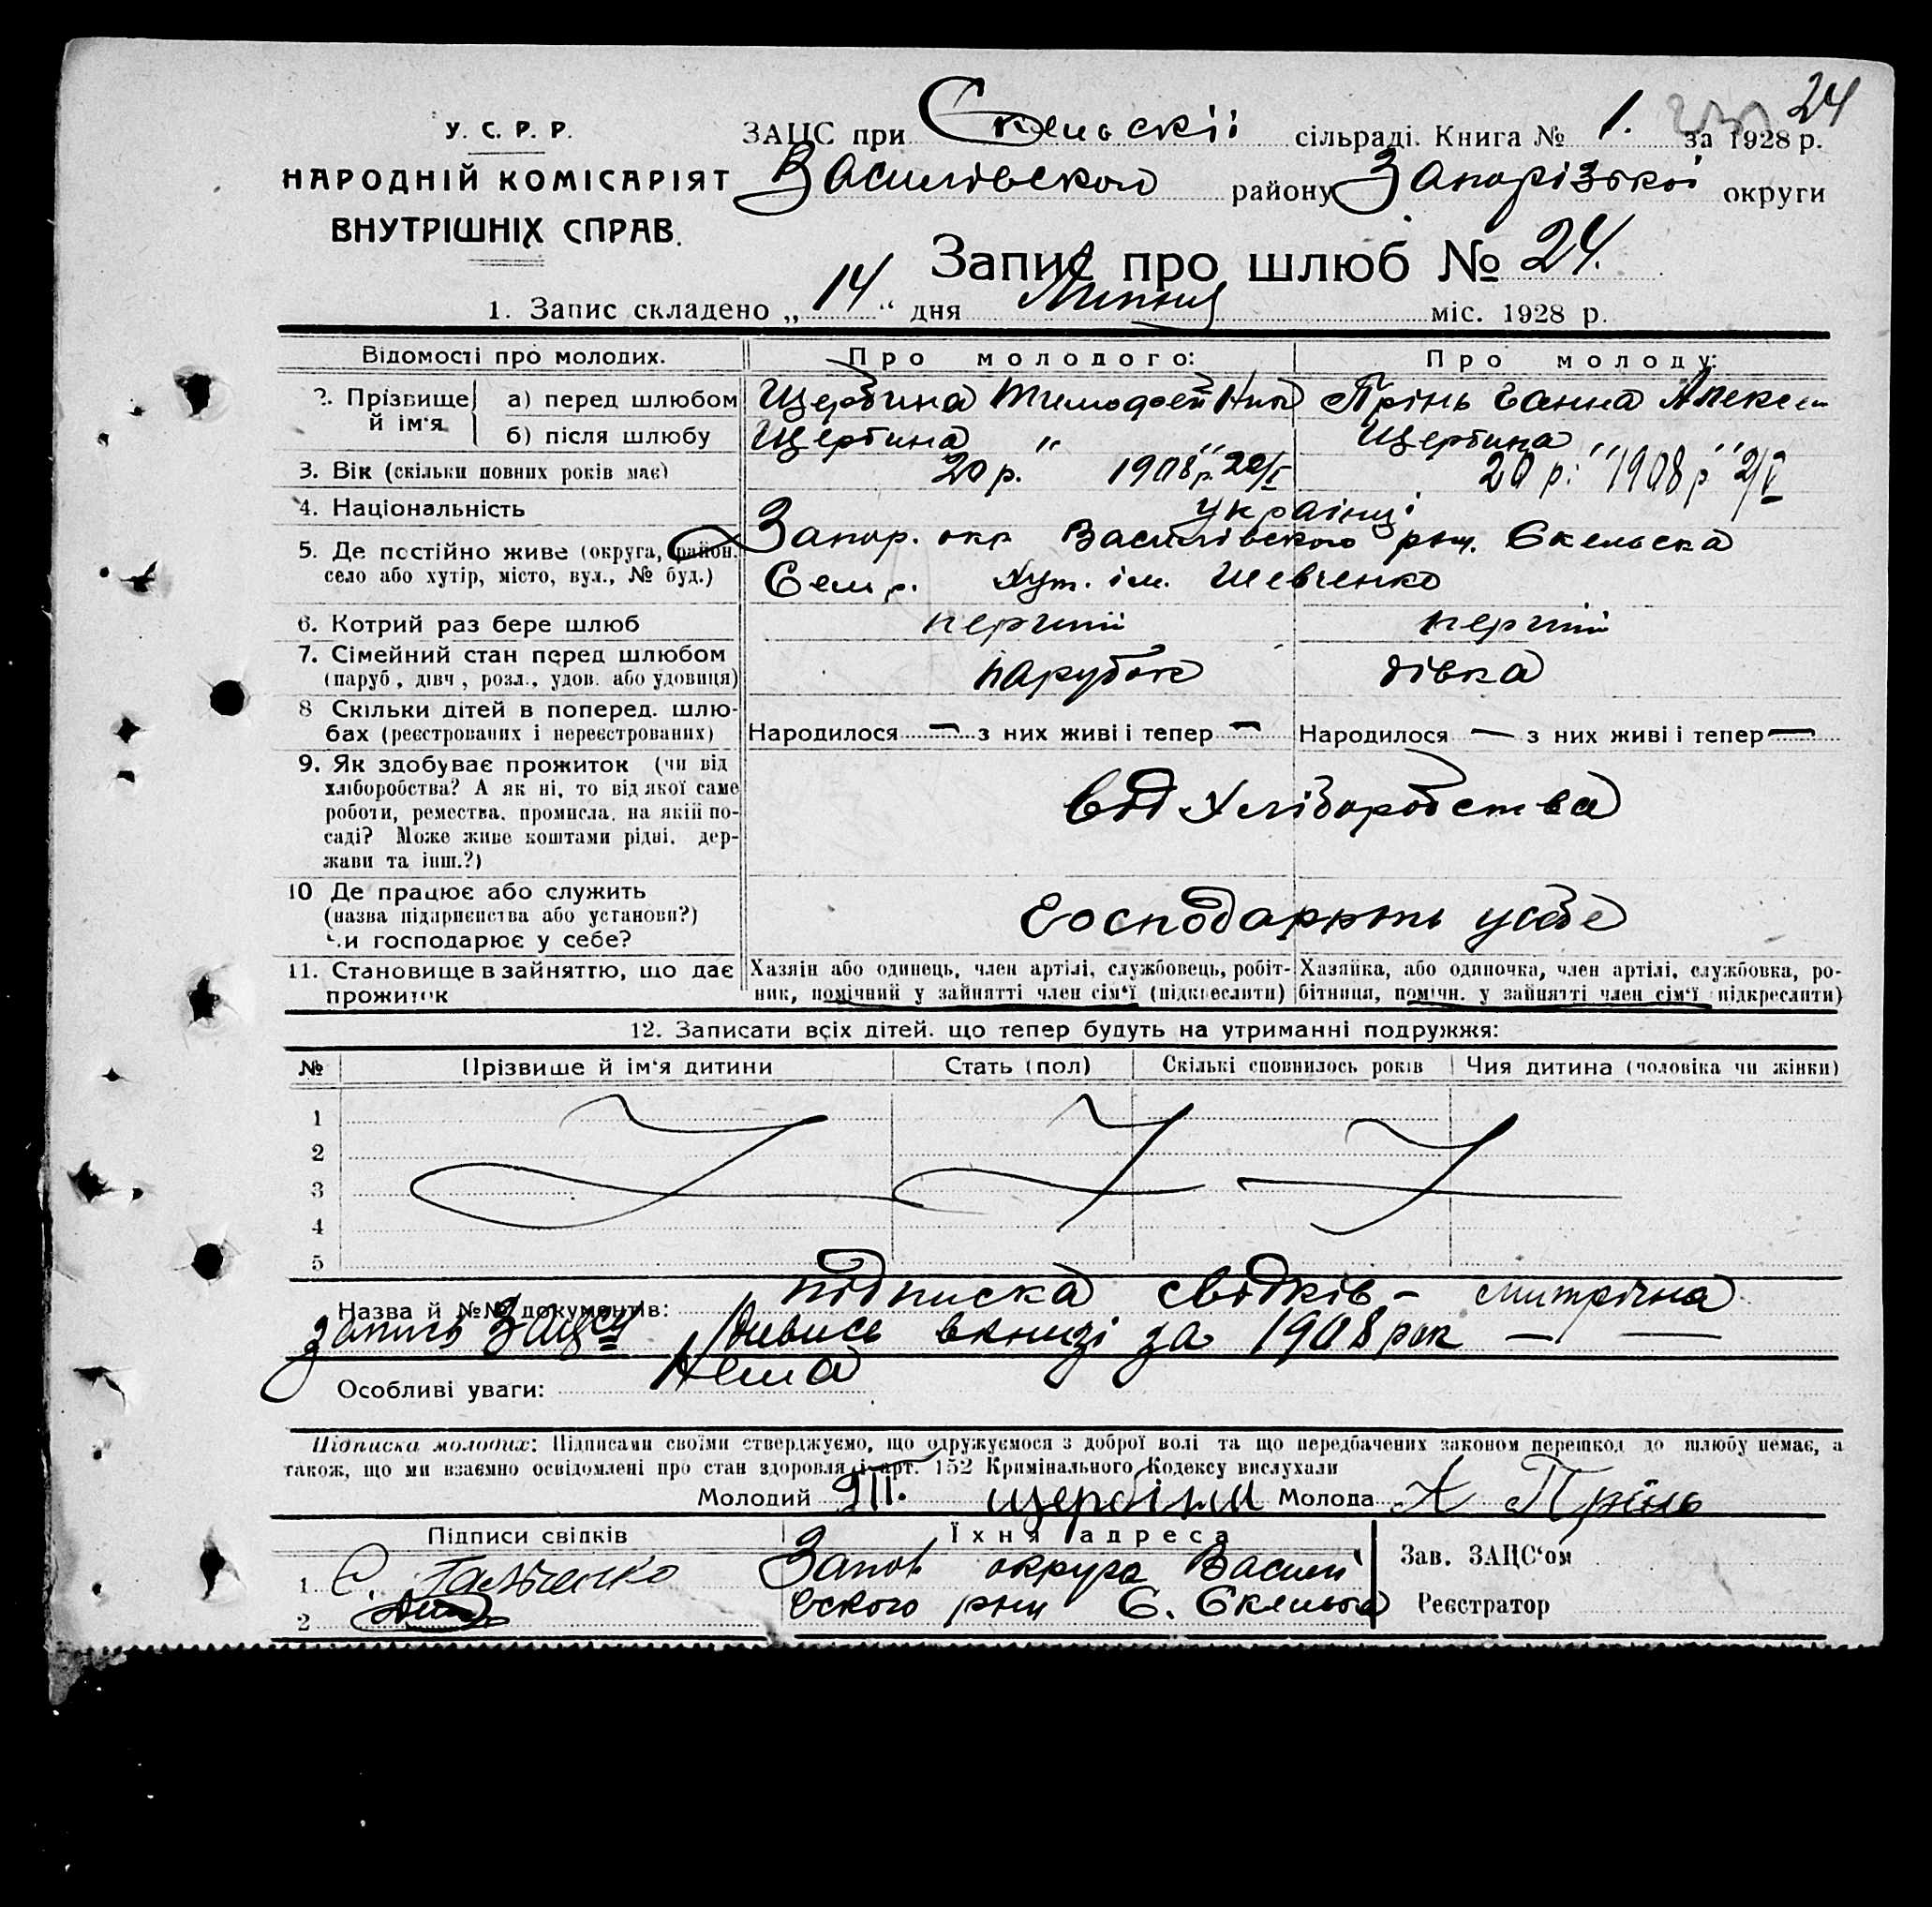 24
У. С. Р. Р.
НАРОДНІЙ КОМІСАРІЯТ
ВНУТРІШНІХ СПРАВ.
ЗАЦС при Скельскій сільраді. Книга № 1. за 1928 р.
Василівского району Запорізької округи
Запис про шлюб № 24.
1. Запис складено „ 14 “ дня Липня міс. 1928 р.
Відомості про молодих. Про молодого: Про молоду:
2. Прізвище й ім'я а) перед шлюбом Щербина Тимофей Прінь Ганна Алексі
б) після шлюбу Щербина " " Щербина " "
3. Вік (скільки повних років має) 20 р. 1908 р. 20/I 20 р. 1908 р 2/V
4. Національність українці
5. Де постійно живе (округа, район, село або хутір, місто, вул., № буд.) Запор. окр Василівского рощ. Скельска
Сельр. хут. ім. Шевченко
6. Котрий раз бере шлюб перший перший
7. Сімейний стан перед шлюбом (паруб, дівч, розл., удов. або удовиця) парубок дівка
8 Скільки дітей в поперед. шлюбах (реєстрованих і нереєстрованих) Народилося — з них живі і тепер — Народилося — з них живі і тепер —
9. Як здобуває прожиток (чи від
хліборобства? А як ні, то від якої саме
роботи, ремества, промисла, на якій по-
саді? Може живе коштами рідні, дер-
жави та інш.?)
від хліборобства
10 Де працює або служить
(назва підприємства або установи?)
Чи господарює у себе?
господарюють усебе
11. Становище в зайняттю, що дає прожиток
Хазяїн або одинець, член артілі, службовець, робіт-
ник, помічний у зайнятті член сім'ї (підкреслити)
Хазяйка, або одиночка, член артілі, службовка, ро-
бітниця, помічн. у зайнятті член сім'ї підкреслити)
12. Записати всіх дітей. що тепер будуть на утриманні подружжя:
№ Прізвище й ім'я дитини Стать (пол) Скількі сповнилось років Чия дитина (чоловіка чи жінки)
1
2
3
4
5
Назва й №№ документів: підписка свідків - митрична
запись Зацсу Дивись вкнизі за 1908 рок — —
Особливі уваги: Нема
Підписка молодих: Підписами своїми стверджуємо, що одружуємося з доброї волі та що передбачених законом перешкод до шлюбу немає, а
також, що ми взаємно освідомлені про стан здоровля і арт. 152 Кримінального Кодексу вислухали
Молодий Т. щербіна Молода А Прінь
Підписи свідків Їхня адреса Зав. ЗАЦС'ом
1 С. Гальченко Запов округа Васили
2 вского рощ С. Скельска Реєстратор